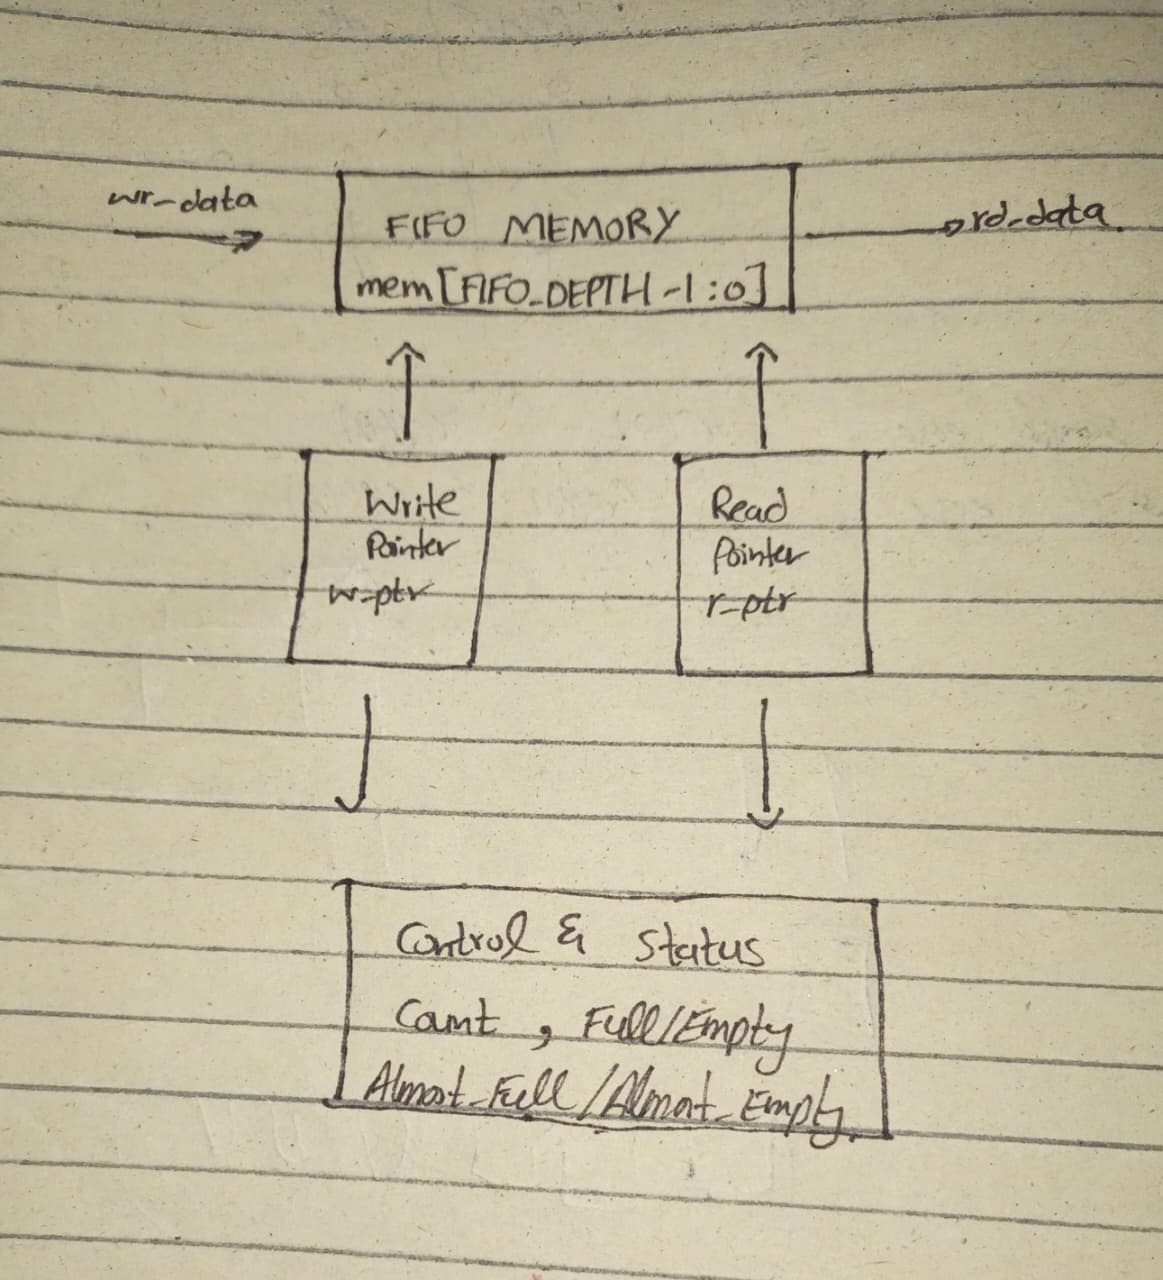 wr-data
FIFO MEMORY
mem[FIFO_DEPTH-1:0]
rd_data
Write
Pointer
w-ptr
Read
Pointer
r_ptr
Control & Status
Count , Full/Empty
Almost_Full/Almost_Empty.